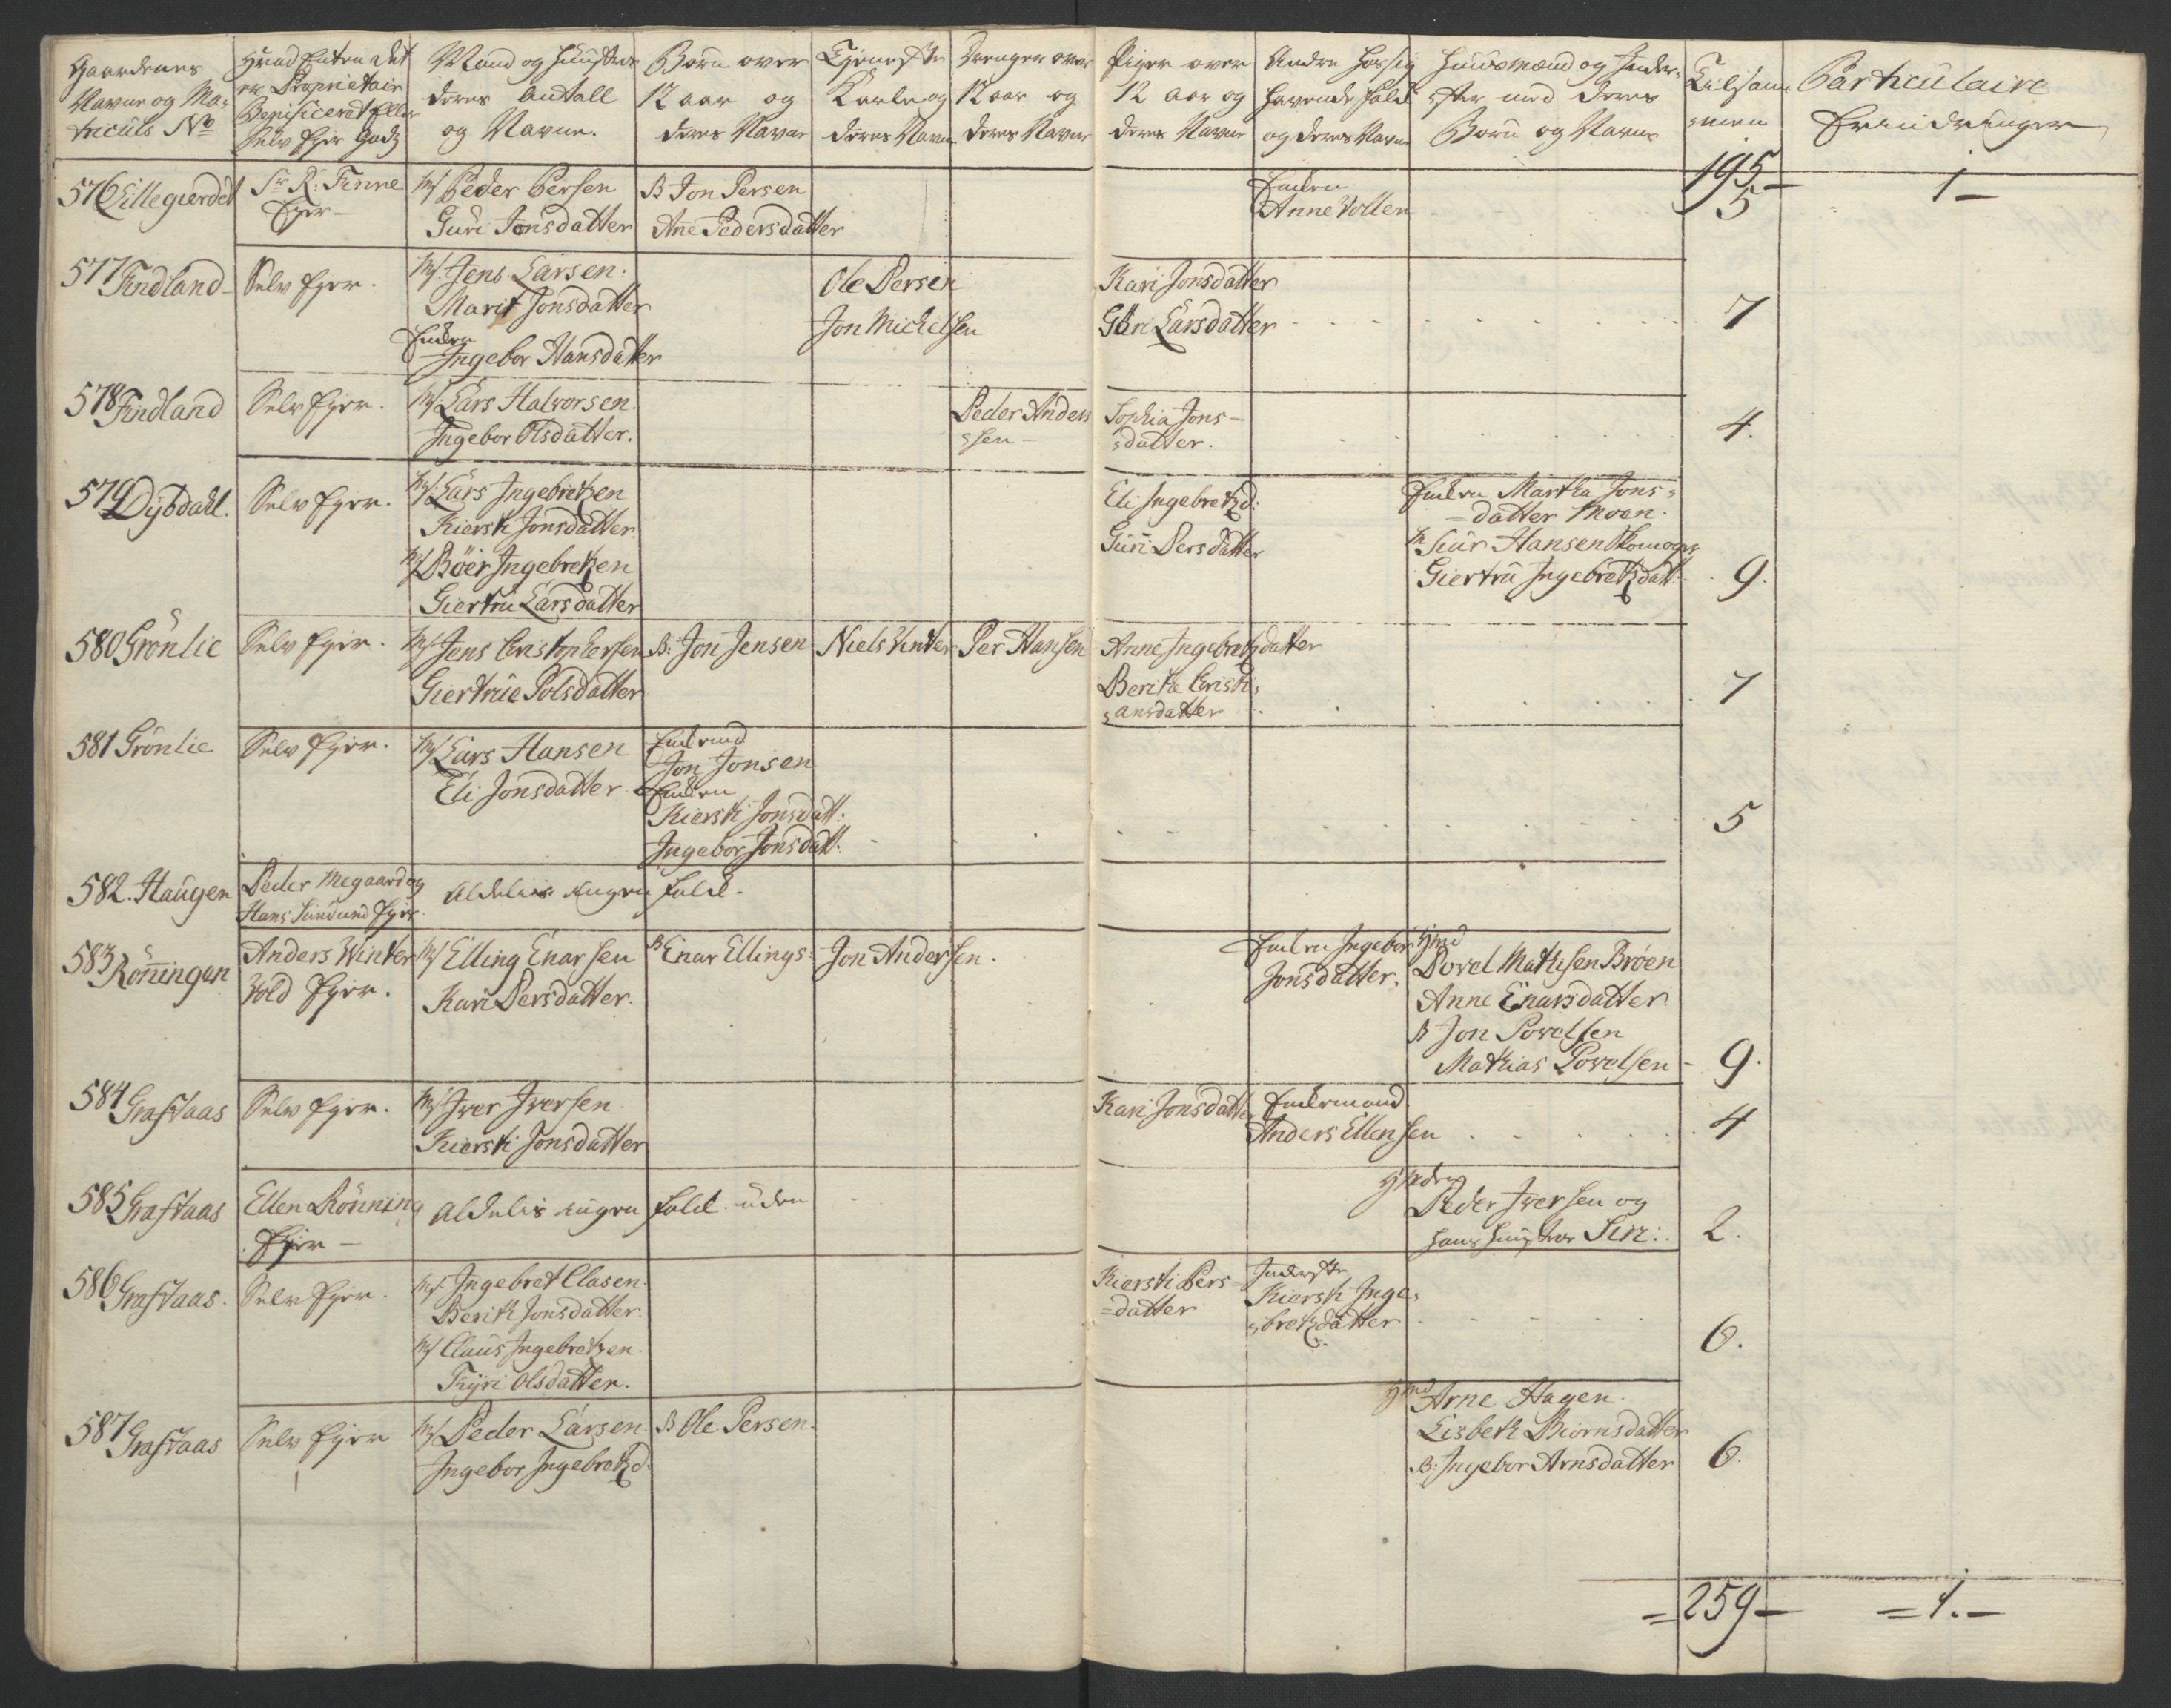 Gaardenes Navne og Ma-
triculs No
Hvad enten det
er Proprietair
Beneficeret eller
Selv Ejer Gods
Mand og Hustrue
deres Antall
og Navne.
Børn over
12 aar og
deres Navne
Tjeneste
Karle og
deres Navne
Drenger over
12 aar og
deres Navne
Piger over
12 aar og
deres Navne
Andre hos sig
havende folk
og deres Navne
Huusmænd og Inder-
ster med deres
Børn og Navne
Tilsam-
men
Particulaire
Erindringer
195 - 1 -
576 Lillegierdet
Sr R: Finne
Ejer -
M/ Peder Persen
Guri Jonsdatter
B: Jon Persen
Ane Pedersdatter
Enken
Anne Vollen
5
577 Findland
Selv Ejer.
M/: Jens Larsen.
Marit Jonsdatter
Enken
Ingebor Hansdatter
Ole Persen
Jon Michelsen
Kari Jonsdatter
Guri Larsdatter
7
578 Findland
Selv Ejer.
M/: Lars Halvorsen
Ingebor Olsdatter.
Peder Anders
sen -
Sophia Jons-
datter.
4.
579 Dybdahl.
Selv Ejer.
M/: Lars Ingebretzen
Kiersti Jonsdatter.
M/ Böer Ingebretzen
Giertru Larsdatter
Eli Ingebretzd:
Guri Persdatter
Enken Martha Jons-
datter Moen.
M Siur Hansen
Giertru Ingebretzdatt:
9.
580 Grönlie
Selv Ejer.
M/: Jens Cristophersen
Giertrue Polsdatter
B: Jon Jensen
Niels Vinter
Per Hansen
Anne Ingebretzdatter
Beritha Cristi-
ansdatter
7
581 Grönlie
Selv Ejer.
M/ Lars Hansen
Eli Jonsdatter
Jon Jonsen
Enken
Kiersti Jonsdatt:
Ingebor Jonsdatt:
5
582. Haugen
Peder Megaard og
Hans Sundund Ejer.
Aldeles ingen folk.
583 Rönningen
Anders Winter
Vold Ejer.
M/ Elling Enarsen
Kari Persdatter.
B Enar Ellings:
Jon Andersen.
Enken Ingebor
Jonsdatter.
Hmd
Povel Mathisen Bröen
Anne Enarsdatter
B Jon Povelsen
Mathias Povelsen -
9.
584 Grafsaas
Selv Ejer.
M/ Iver Iversen
Kiersti Jonsdatter
Kari Jonsdatter
Enkemand
Anders Ellensen
4
585 Grafsaas
Ellen Rönning
Ejer -
Aldeles ingen folk uden
Peder Iversen og
hans Hustroe Siri:
2.
586 Grafsaas.
Selv Ejer.
M/: Ingebret Clasen.
Berith Jonsdatter.
M/ Claus Ingebretzen
Kyri Olsdatter.
Kiersti Pers-
datter
Inderste
Kiersti Inge-
bretzdatter
6.
587 Grafsaas
Selv Ejer
M/ Peder Larsen
Ingebor Ingebretzd:
B Ole Persen.
Hmd Arne Hagen.
Lisbeth Biörnsdatter
B: Ingebor Arnsdatter
6.
= 259 - = 1. -